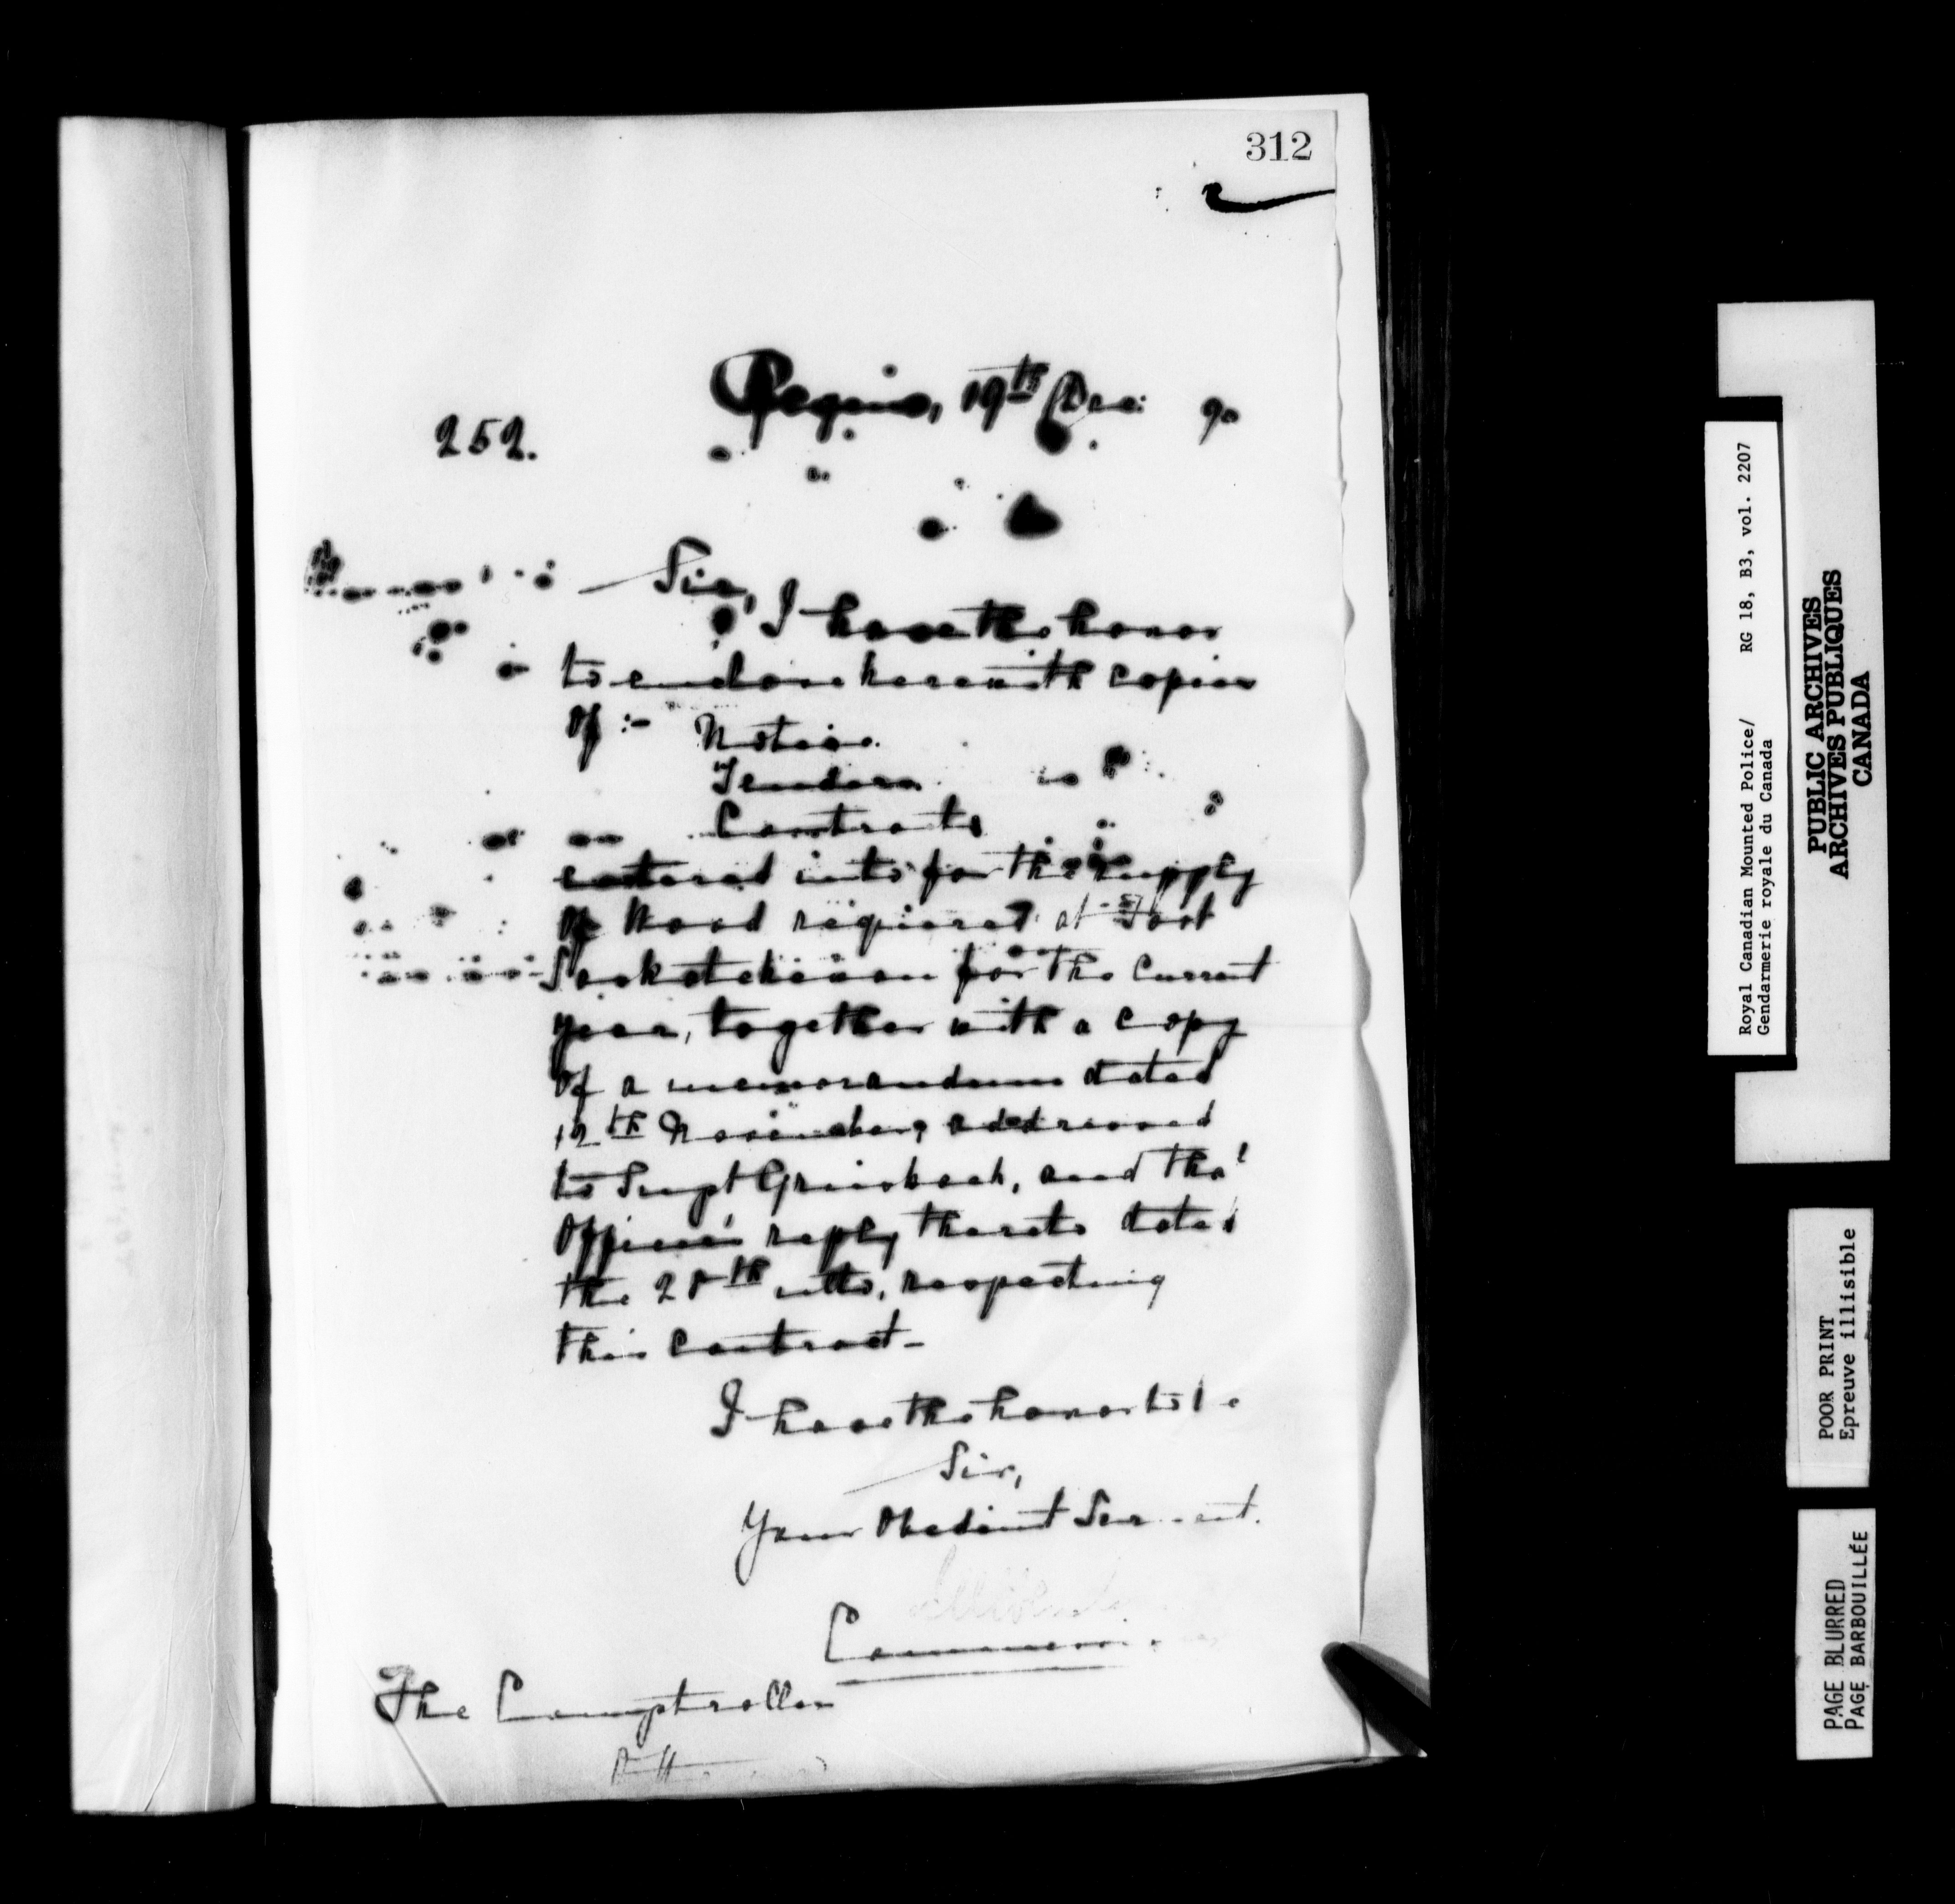 312
Regina, 19th Dec: 90
252.
Sir,
I have the honor
to enclose herewith copies
of :- Notice
Tenders
Contracts
entered into for the supply
of Wood required at Fort
Saskatchewan for the current
year, together with a copy
of a memorandum dated
12th November, addressed
to Supt Griesbach, and tha'
Officer's reply thereto dated
the 28th ulto, respecting
this contract-
I have the honor to be
Sir,
Your Obedient Servant.
The Comptroller
Royal Canadian Mounted Police/ RG 18, B3, vol. 2207
Gendarmerie royale du Canada
PUBLIC ARCHIVES
ARCHIVES PUBLIQUES
CANADA
POOR PRINT
Epreuve illisible
PAGE BLURRED
PAGE BARBOUILLÉE